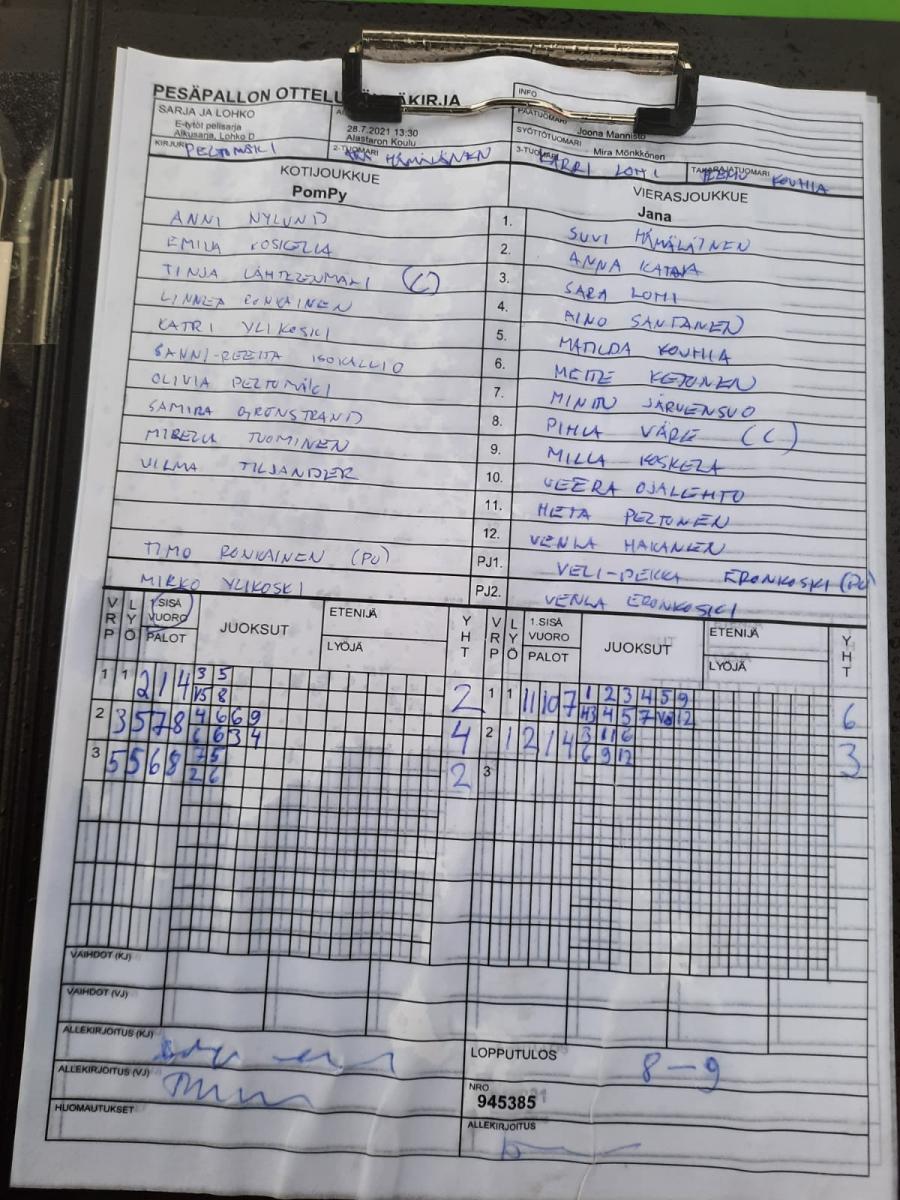 PESÄPALLON OTTELU
SARJA JA LOHKO
E-tytöt pelisarja
Alkusarja, Lohko D
28.7.2021 13:30
Alastaron Koulu
INFO
PÄÄTUOMARI
Joona Mannisto
SYÖTTÖTUOMARI
Mira Mönkkönen
KIRJURI PELTOMÄKI
2-TUOMARI HÄMÄLÄINEN
3-TUOMARI LOHI
TAKARAJATUOMARI KOUHIA
KOTIJOUKKUE
PomPy
VIERASJOUKKUE
Jana
ANNI NYLUND 1. SUVI HÄMÄLÄINEN
EMILIA KOSKELA 2. ANNA KATAJA
TINJA LÄHTEENMÄKI (C) 3. SARA LOHI
LINNEA RONKAINEN 4. AINO SANTANEN
KATRI YLIKOSKI 5. MATILDA KOUHIA
SANNI-REETTA ISOKALLIO 6. METTE KETONEN
OLIVIA PELTOMÄKI 7. MINTTU JÄRVENSUO
SAMIRA GRÖNSTRAND 8. PIHLA VÄRE (C)
MIRELLA TUOMINEN 9. MILLA KOSKELA
VILMA TILJANDER 10. VEERA OJALEHTO
11. HETA PELTONEN
12. VENLA HAKANEN
TIMO RONKAINEN (PJ) PJ1. VELI-PEKKA ERONKOSKI (PJ)
MIRKO YLIKOSKI PJ2. VENLA ERONKOSKI
VRP LYÖ 1.SISÄ VUORO PALOT JUOKSUT ETENIJÄ LYÖJÄ YHT
VRP LYÖ 1.SISÄ VUORO PALOT JUOKSUT ETENIJÄ LYÖJÄ YHT
1 1 2 1 4 3 5 2 1 1 11 10 7 1 2 3 4 5 9 6
8 4 5 7 12
2 3 5 7 8 4 6 6 9 4 2 1 2 1 4 3 11 6 3
6 6 3 4 6 9 12
3 5 5 6 8 7 5 2 3
2 6
VAIHDOT (KJ)
VAIHDOT (VJ)
ALLEKIRJOITUS (KJ)
LOPPUTULOS 8-9
ALLEKIRJOITUS (VJ)
NRO
945385
HUOMAUTUKSET
ALLEKIRJOITUS